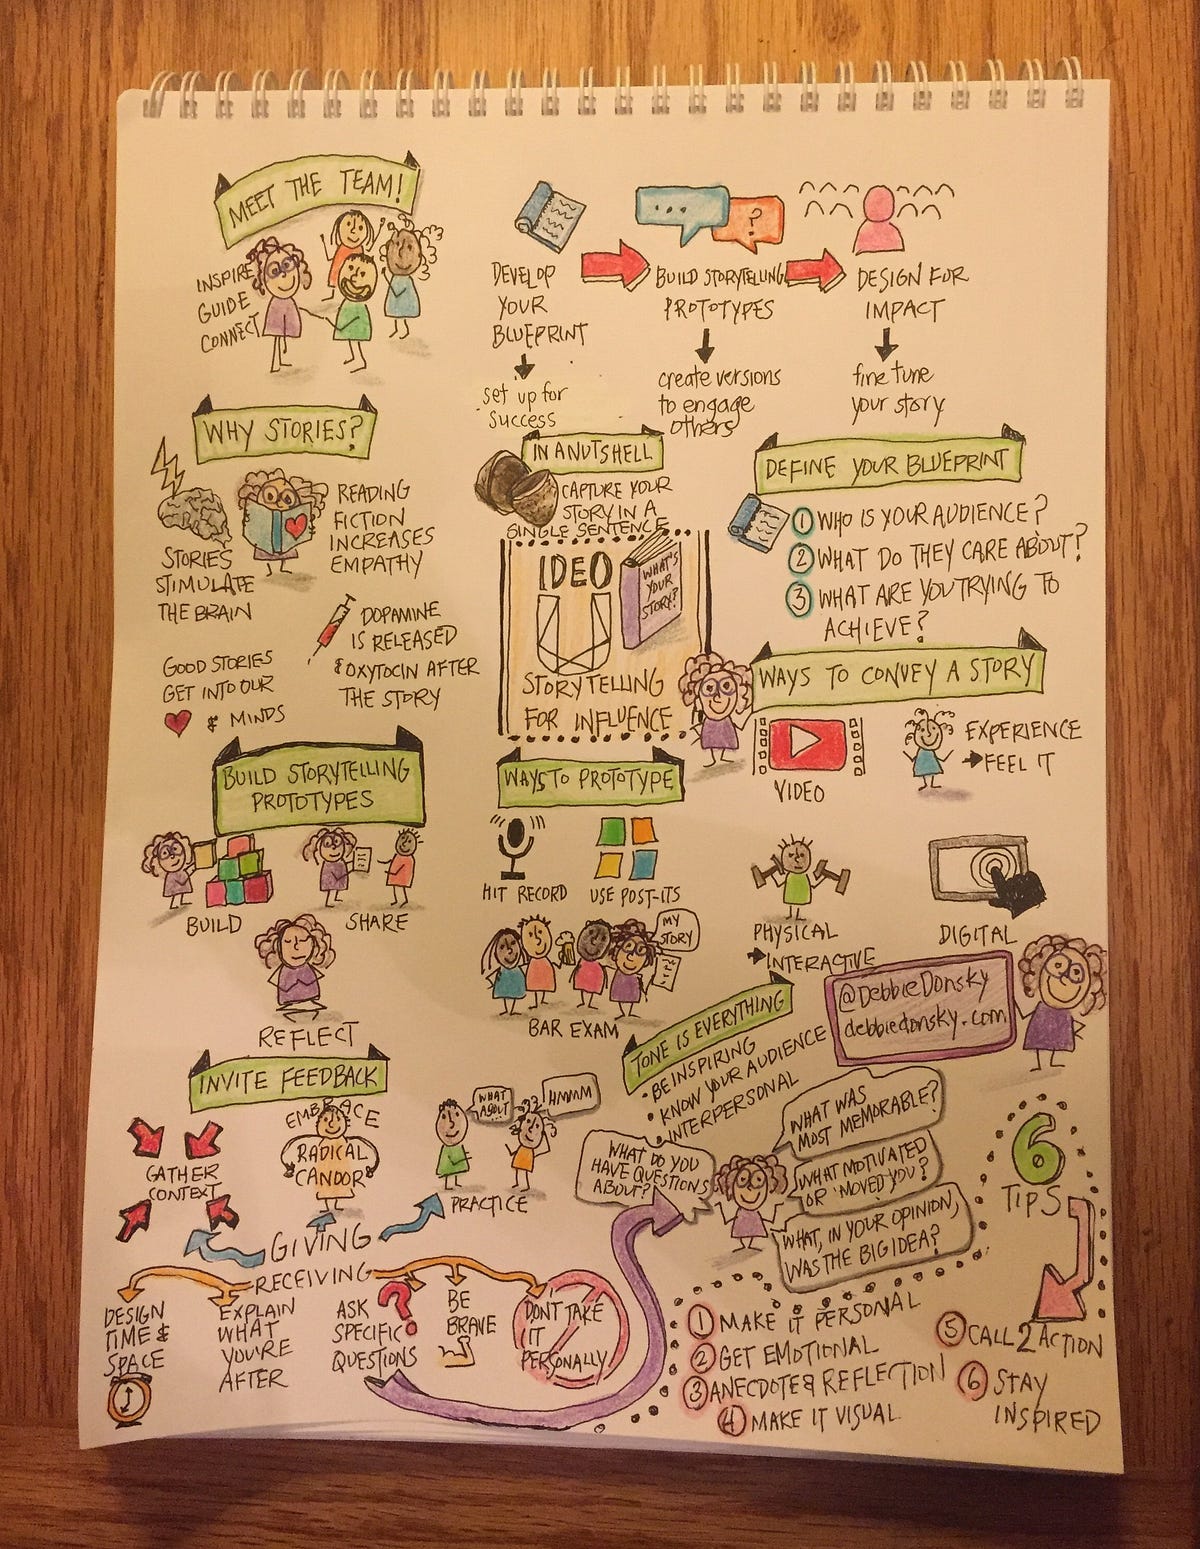 MEET THE TEAM!
INSPIRE
GUIDE
CONNECT
DEVELOP
YOUR
BLUEPRINT
set up for
success
...
?
BUILD STORYTELLING
PROTOTYPES
create versions
to engage
others
DESIGN FOR
IMPACT
fine tune
your story
WHY STORIES?
STORIES
STIMULATE
THE BRAIN
READING
FICTION
INCREASES
EMPATHY
GOOD STORIES
GET INTO OUR
& MINDS
DOPAMINE
IS RELEASED
& OXYTOCIN AFTER
THE STORY
IN A NUTSHELL
CAPTURE YOUR
STORY IN A
SINGLE SENTENCE
IDEO
U
WHAT'S
YOUR
STORY?
STORYTELLING
FOR INFLUENCE
DEFINE YOUR BLUEPRINT
1 WHO IS YOUR AUDIENCE?
2 WHAT DO THEY CARE ABOUT?
3 WHAT ARE YOU TRYING TO
ACHIEVE?
WAYS TO CONVEY A STORY
VIDEO
EXPERIENCE
FEEL IT
PHYSICAL
INTERACTIVE
DIGITAL
BUILD STORYTELLING
PROTOTYPES
BUILD
SHARE
REFLECT
WAYS TO PROTOTYPE
HIT RECORD
USE POST-ITS
MY
STORY
BAR EXAM
@DebbieDonsky
debbiedonsky.com
TONE IS EVERYTHING
• BE INSPIRING
• KNOW YOUR AUDIENCE
• INTERPERSONAL
INVITE FEEDBACK
GATHER
CONTEXT
EMBRACE
RADICAL
CANDOR
WHAT
ABOUT
HMMM
PRACTICE
GIVING
RECEIVING
DESIGN
TIME &
SPACE
EXPLAIN
WHAT
YOU'RE
AFTER
ASK
SPECIFIC
QUESTIONS
?
BE
BRAVE
DON'T TAKE
IT
PERSONALLY
WHAT DO YOU
HAVE QUESTIONS
ABOUT?
WHAT WAS
MOST MEMORABLE?
WHAT MOTIVATED
OR 'MOVED YOU'?
WHAT, IN YOUR OPINION,
WAS THE BIG IDEA?
6
TIPS
1 MAKE IT PERSONAL
2 GET EMOTIONAL
3 ANECDOTE & REFLECTION
4 MAKE IT VISUAL
5 CALL 2 ACTION
6 STAY
INSPIRED